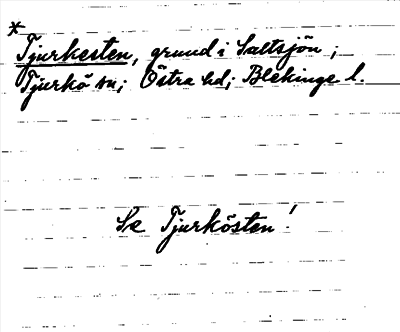 *
Tjurkesten, grund i Saltsjön;
Tjurkö sn; Östra hd; Blekinge l.
Se Tjurkösten!